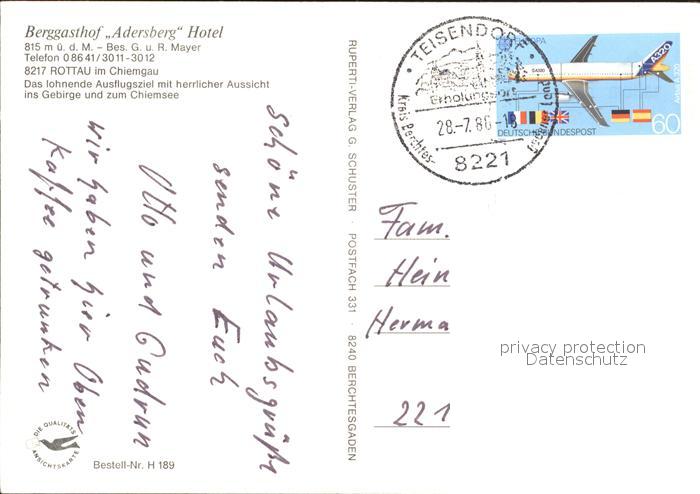 Berggasthof „Adersberg" Hotel
815 m ü. d. M. – Bes. G. u. R. Mayer
Telefon 0 86 41 / 30 11 - 30 12
8217 ROTTAU im Chiemgau
Das lohnende Ausflugsziel mit herrlicher Aussicht
ins Gebirge und zum Chiemsee
Schöne Urlaubsgrüße
senden Euch
Otto und Gudrun
wir haben hier Oben
Kaffee getrunken
DIE QUALITÄTS
ANSICHTSKARTE
Bestell-Nr. H 189
RUPERTI-VERLAG G. SCHUSTER · POSTFACH 331 · 8240 BERCHTESGADEN
TEISENDORF
Erholungsort
Kreis Berchtes-
gadener Land
28.-7.88-18
8221
EUROPA
A320
Airbus A 320
DEUTSCHE BUNDESPOST
60
Fam.
Hein
Herma
221
privacy protection
Datenschutz